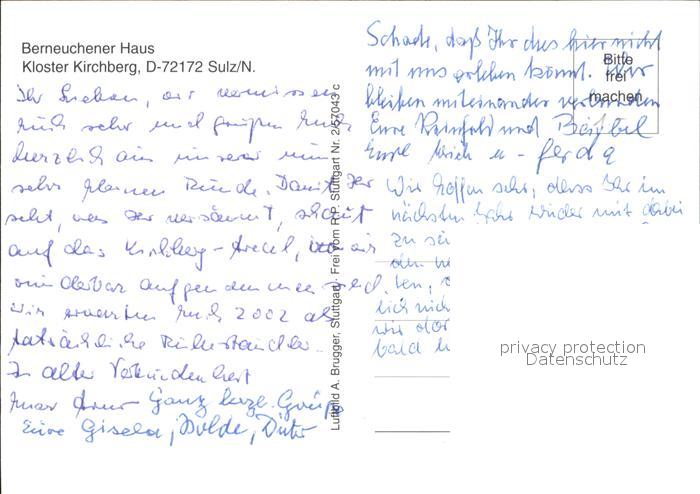 Berneuchener Haus
Kloster Kirchberg, D-72172 Sulz/N.
Ihr Lieben, wir vermissen
Euch sehr und grüßen Euch
herzlich aus unserer nun
sehr kleinen Runde. Damit Ihr
seht, was Ihr versäumt, schaut
auf das Kirchberg-Areal, wo wir
wunderbar aufgenommen sind.
Wir erwarten Euch 2002 als
tatsächliche Ruheständler.
In alter Verbundenheit
Euer Ganz herzl. Grüße
Eure Gisela, Isolde, Dieter
Luftbild A. Brugger, Stuttgart, Frei vom R.P. Stuttgart Nr. 2/57043 c
Schade, daß Ihr dies hier nicht
mit uns erleben könnt. Wir
bleiben miteinander verbunden
Eure Reinhold und Bärbel
Erich u. Gerda
Bitte
frei
machen
Wir hoffen sehr, dass Ihr im
nächsten Jahr wieder mit dabei
zu sei
den
ten,
lich nich
wir dor
bald
privacy protection
Datenschutz